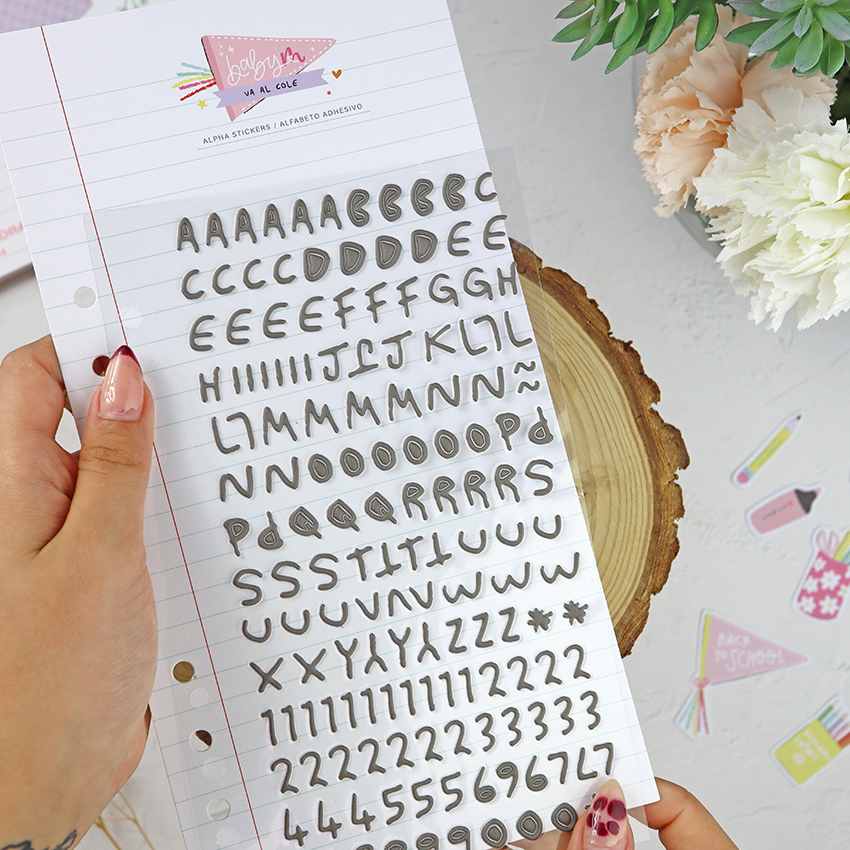 babym
VA AL COLE
ALPHA STICKERS / ALFABETO ADHESIVO
A A A A A B B B B C
C C C C D D D D E E
E E E E F F F G G H
H I I I I I J J J K L L L
L L M M M M N N N ~
N N O O O O O O P P
P P Q Q Q R R R R S
S S S T T T T U U U
U U U U V V V W W W
X X Y Y Y Y Z Z Z * *
1 1 1 1 1 1 1 1 1 2 2 2 2
2 2 2 2 2 2 3 3 3 3
4 4 4 5 5 5 6 9 6 7 L 7
BACK
TO SCHOOL